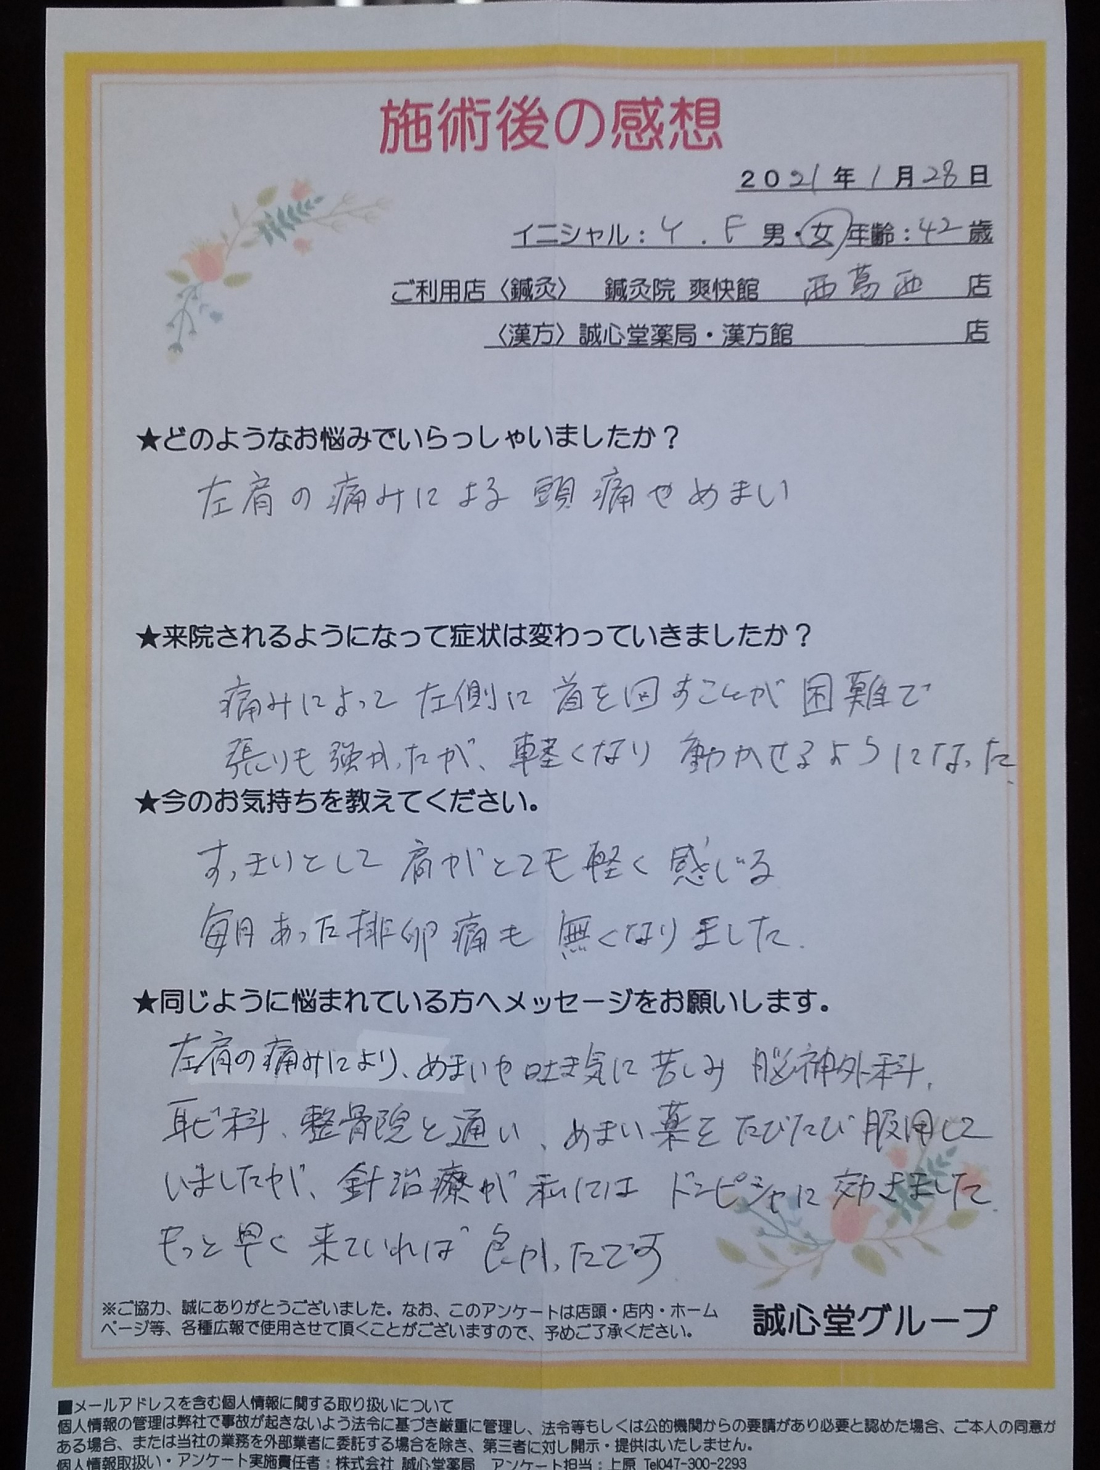 施術後の感想
2021年1月28日
イニシャル：Y．F 男・女 年齢：42歳
ご利用店〈鍼灸〉 鍼灸院 爽快館 西葛西 店
〈漢方〉誠心堂薬局・漢方館 店
★どのようなお悩みでいらっしゃいましたか？
左肩の痛みによる頭痛やめまい
★来院されるようになって症状は変わっていきましたか？
痛みによって左側に首を回すことが困難で
張りも強かったが、軽くなり動かせるようになった
★今のお気持ちを教えてください。
すっきりとして肩がとても軽く感じる
毎月あった排卵痛も無くなりました．
★同じように悩まれている方へメッセージをお願いします。
左肩の痛みにより、めまいや吐き気に苦しみ脳神外科、
耳ビ科、整骨院と通い、めまい薬をたびたび服用して
いましたが、針治療が私にはドンピシャに効きました
もっと早く来ていれば良かったです
※ご協力、誠にありがとうございました。なお、このアンケートは店頭・店内・ホーム
ページ等、各種広報で使用させて頂くことがございますので、予めご了承ください。
誠心堂グループ
■メールアドレスを含む個人情報に関する取り扱いについて
個人情報の管理は弊社で事故が起きないよう法令に基づき厳重に管理し、法令等もしくは公的機関からの要請があり必要と認めた場合、ご本人の同意が
ある場合、または当社の業務を外部業者に委託する場合を除き、第三者に対し開示・提供はいたしません。
個人情報取扱い・アンケート実施責任者：株式会社 誠心堂薬局 アンケート担当：上原 Tel047-300-2293